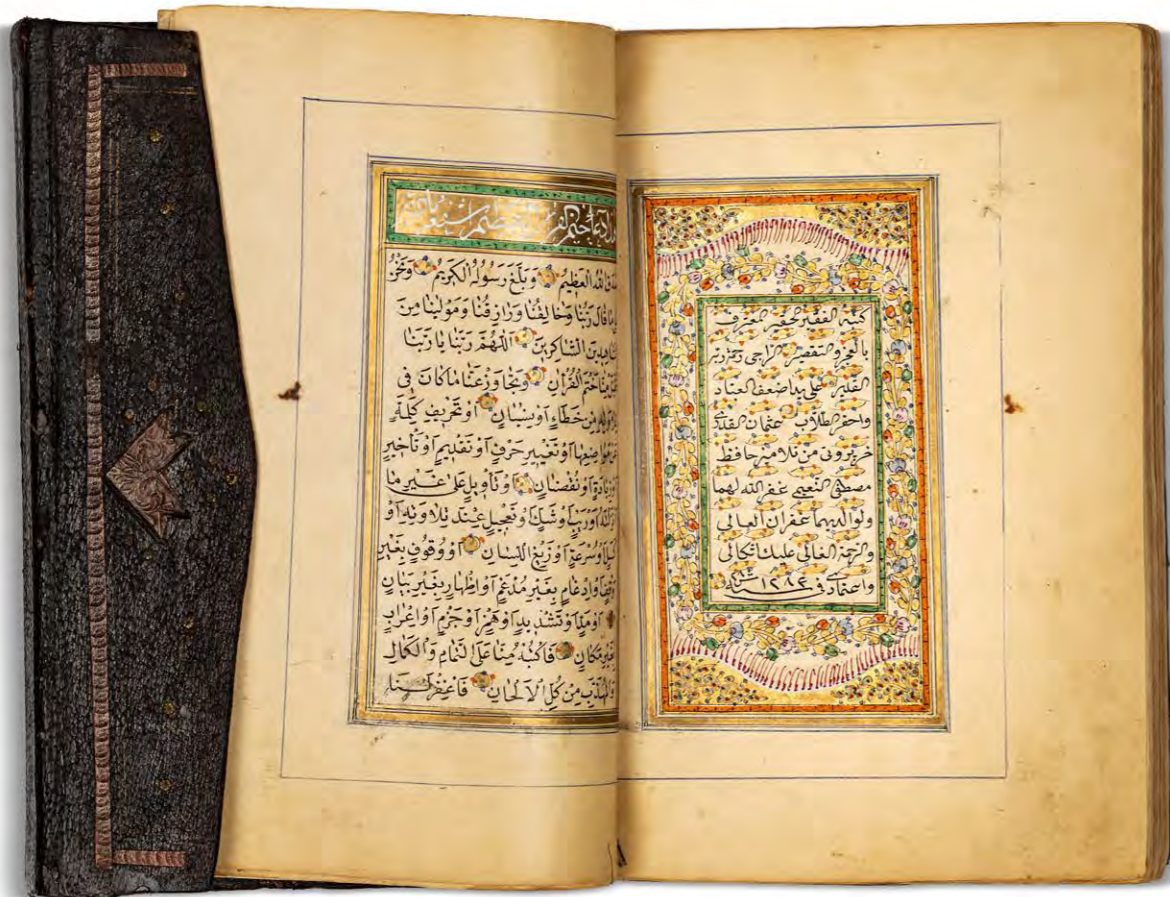 كتبه الفقير الحقير المعترف
بالعجز والتقصير الراجي رحمة ربه
القدير على يد اضعف العباد
واحقر الطلاب عثمان القدري
خرپروتى من تلاميذ حافظ
مصطفى النعيمى غفر الله لهما
ولوالديهما غفران العالى
والرحمة الغالى عليك اتكالى
واعتمادى فى سنة ١٢٨٤
صدق الله العظيم وبلغ رسوله الكريم ونحن
ما قال ربنا وخالقنا ورازقنا ومولينا من
الشاهدين الشاكرين اللهم ربنا يا ربنا
تقبل منا ختم القرآن وتجاوز عنا ما كان فى
من خطاء او نسيان او تحريف كلمة
عن مواضعها او تغيير حرف او تقديم او تاخير
او زيادة او نقصان او تاويل على غير ما
او ريب او شك او تعجيل عند تلاوته او
كسل او سرعة او زيغ اللسان او وقوف بغير
وقف او ادغام بغير مدغم او اظهار بغير بيان
او مد او تشديد او همز او جزم او اعراب
بغير مكان فاكتبه منا على التمام والكمال
والمهذب من كل الالحان فاغفر لنا